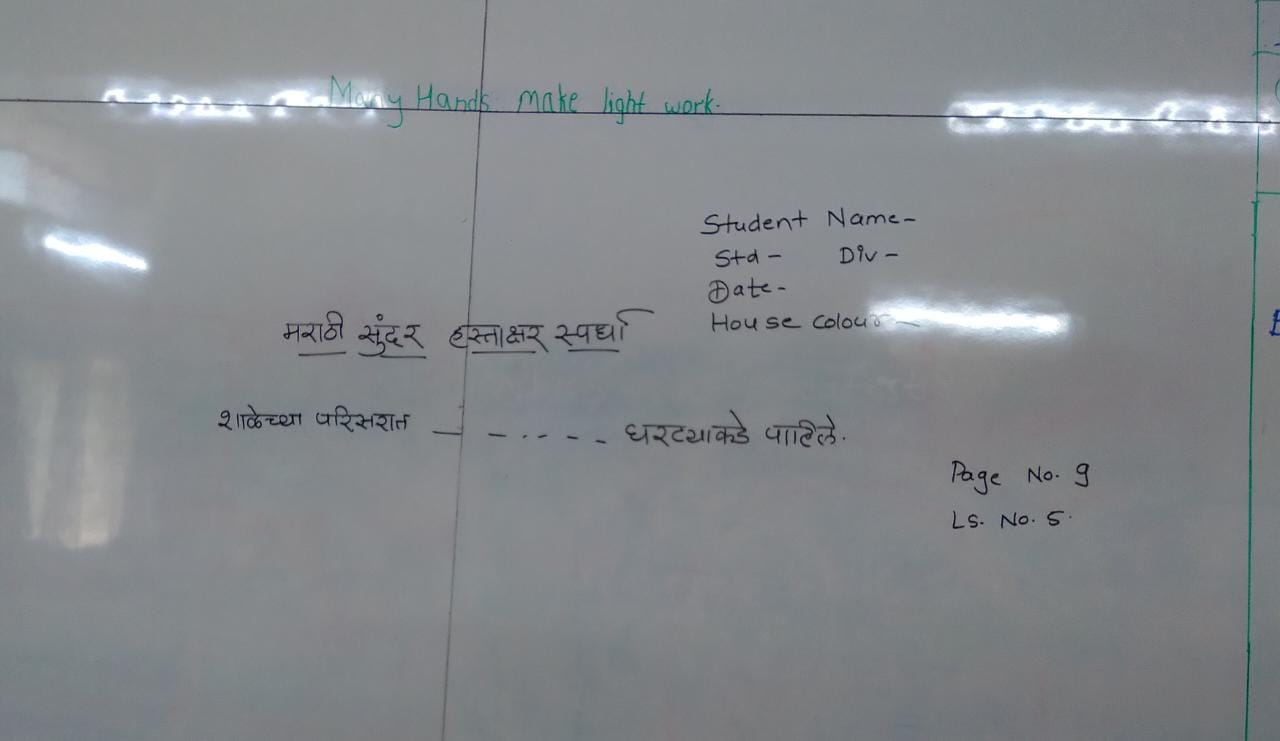 Many Hands make light work.
Student Name-
Std - Div -
Date-
House colour -
मराठी सुंदर हस्ताक्षर स्पर्धा
शाळेच्या परिसरात — - . . - - - घरट्याकडे पाहिले.
Page No. 9
Ls. No. 5.